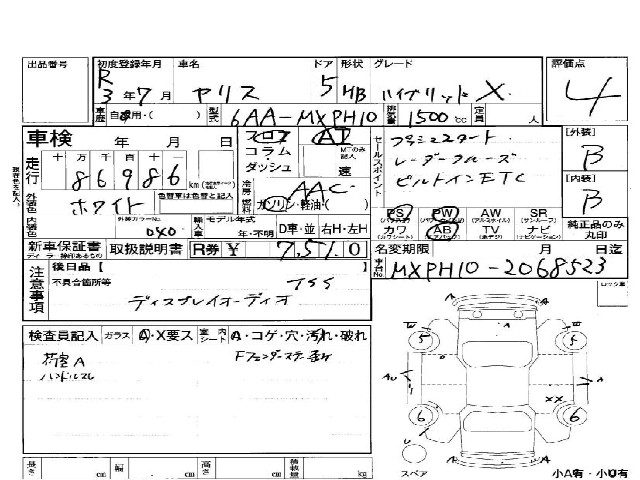 出品番号 初度登録年月 車名 ドア 形状 グレード 評価点
R3年7月 ヤリス 5 HB ハイブリッド X 4
車歴 自家用・( ) 型式 6AA-MXPH10 排気量 1500cc 定員 人
車検 年 月 日 フロア AT
コラム・ダッシュ 速
走行 十万千百十一
86986 km
外装色 ホワイト 色替車は色替と記入
冷房 AAC
燃料 ガソリン・軽油・( )
内装色 外装カラーNo. 040 輸入車 モデル年式 年・不明 D車・並 右H・左H
セールスポイント
プッシュスタート
レーダークルーズ
ビルトインETC
[外装] B
[内装] B
PS PW AW SR
カワ AB TV ナビ
純正品のみ丸印
新車保証書 取扱説明書 R券 ¥ 7,510 名変期限 月 日迄
車台No. MXPH10-2068523
注意事項 後日品【 】
不具合箇所等 TSS
ディスプレイオーディオ
ロック車
検査員記入 ガラス A・X要ス 室内シート A・コゲ・穴・汚れ・破れ
荷室A
ハンドルスレ
スペア 小A有・小U有
長さ cm 幅 cm 高さ cm 積載量 kg